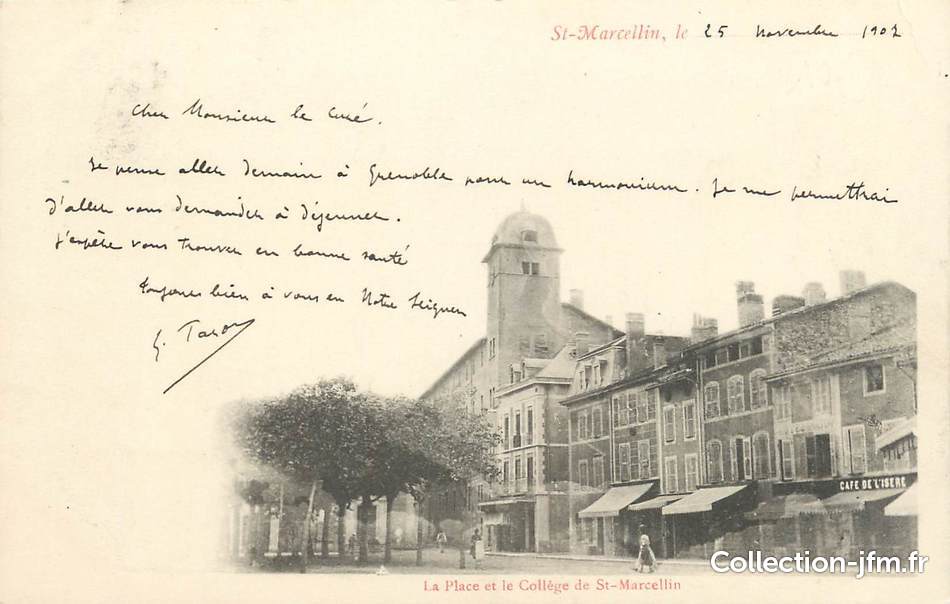 St-Marcellin, le 25 novembre 1902
Cher Monsieur le Curé.
Je pense aller demain à Grenoble pour un harmonium. Je me permettrai
d'aller vous demander à déjeuner.
J'espère vous trouver en bonne santé
Toujours bien à vous en Notre Seigneur
CAFE DE L'ISERE
La Place et le Collège de St-Marcellin
Collection-jfm.fr